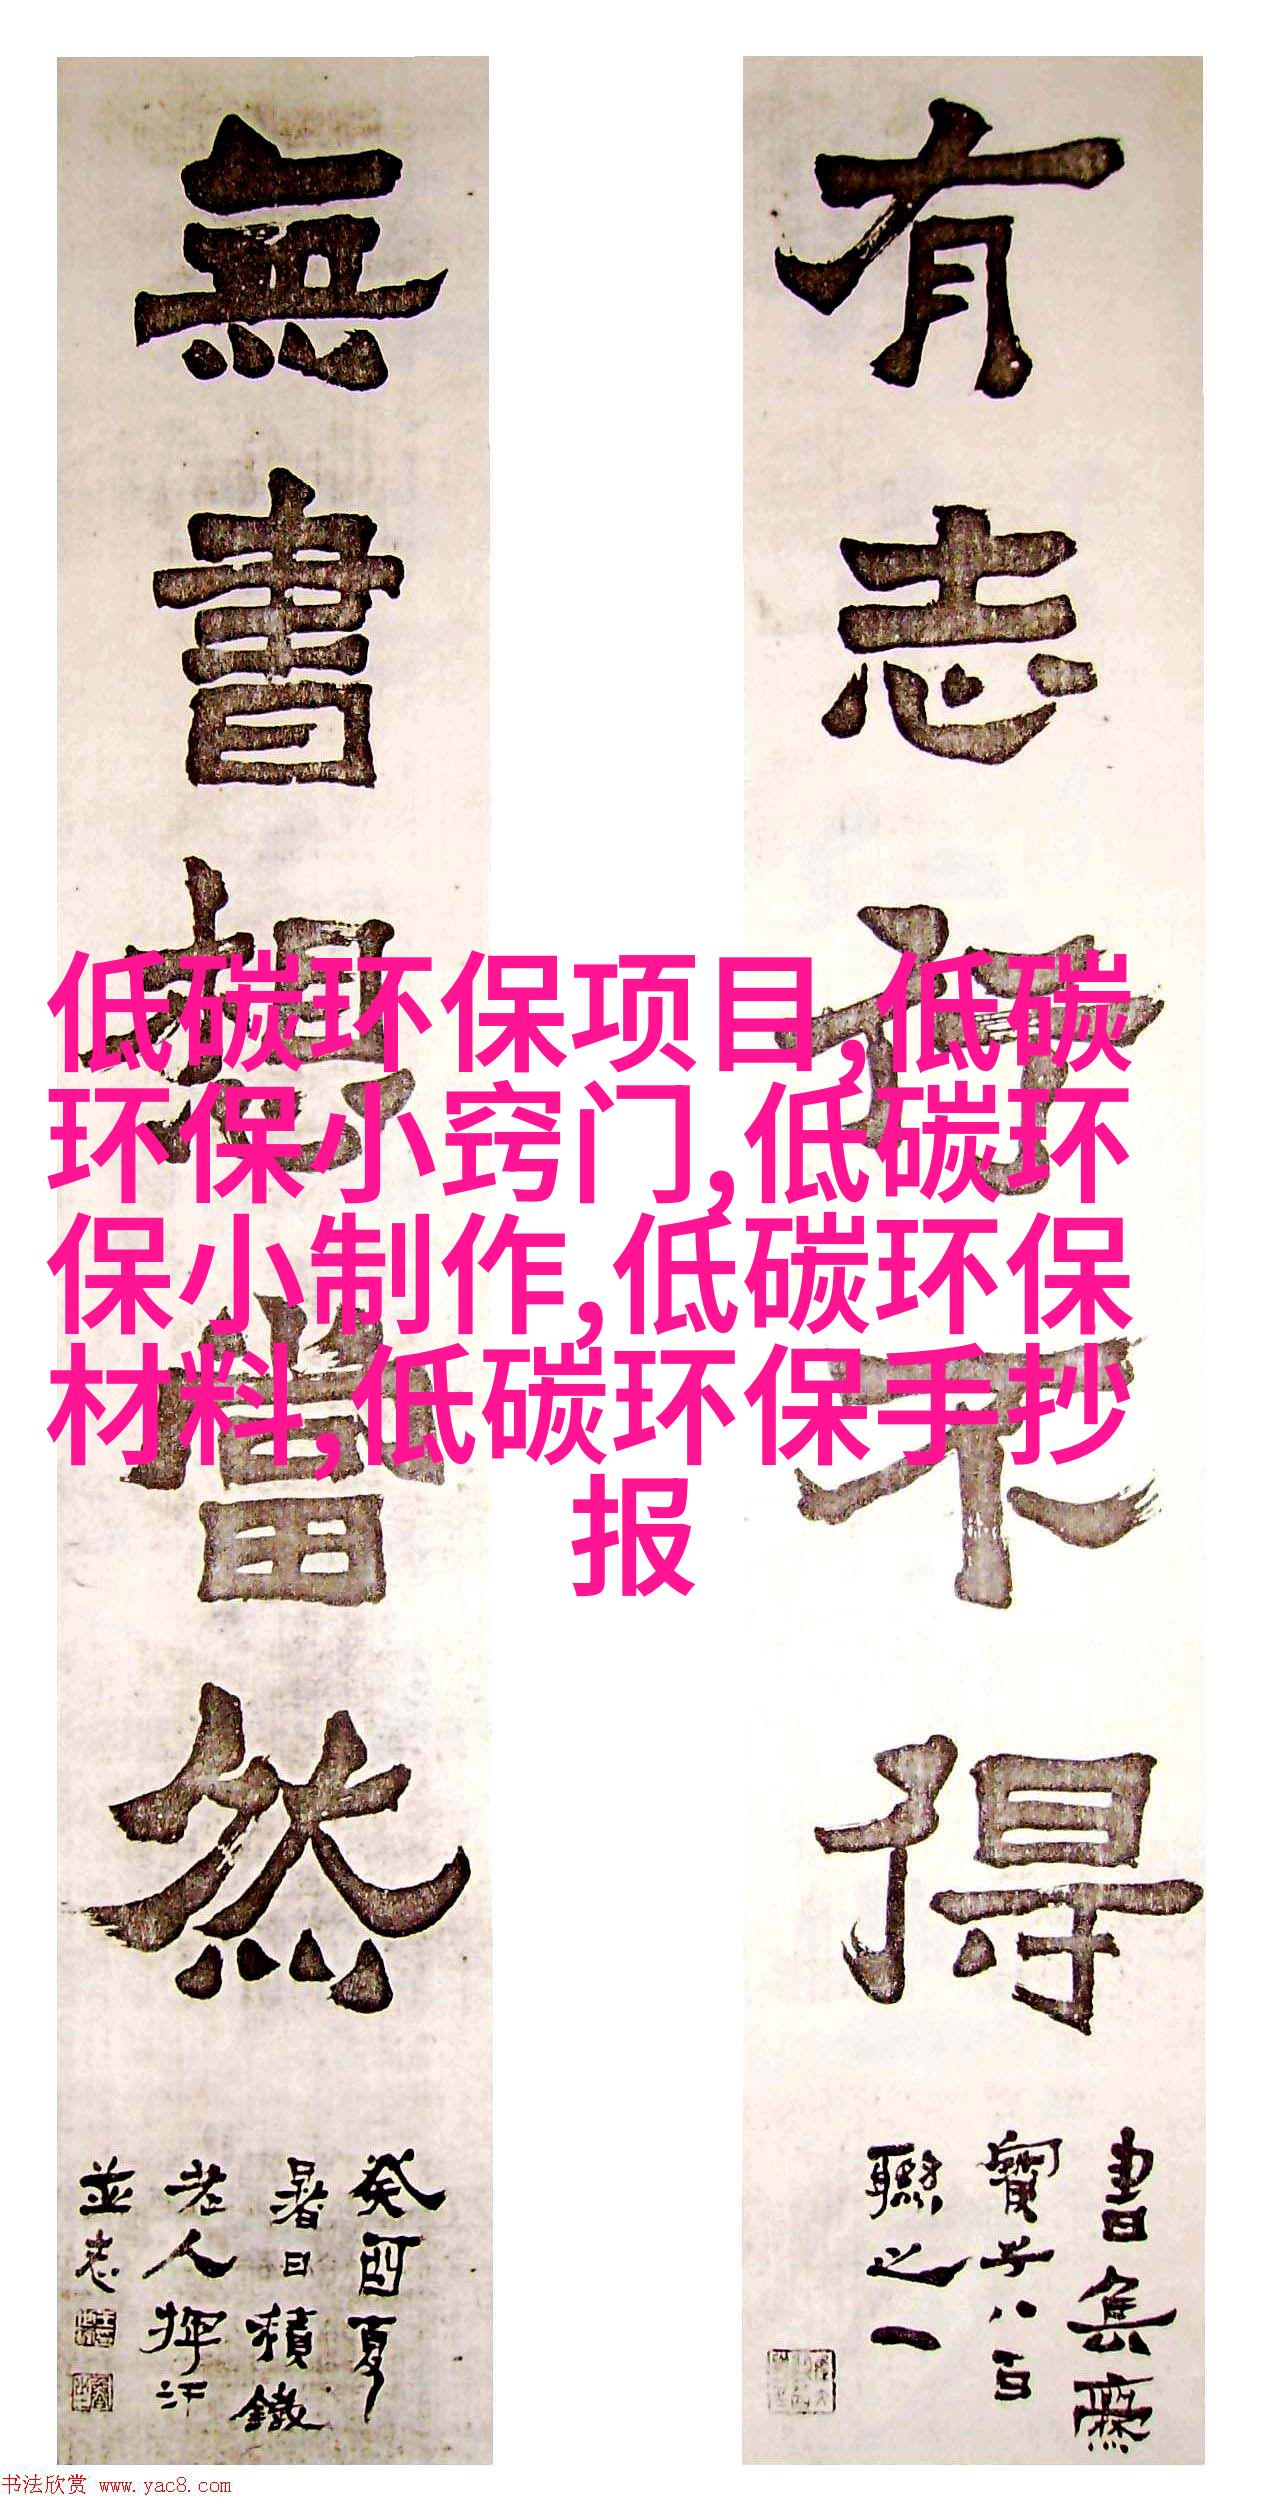 有志行不得
書集爨
寶子八百
聯之一
無書想當然
癸酉夏
暑日積鐵
老人揮汗
並志
低碳环保项目,低碳
环保小窍门,低碳环
保小制作,低碳环保
材料,低碳环保手抄
报
书法欣赏 www.yac8.com